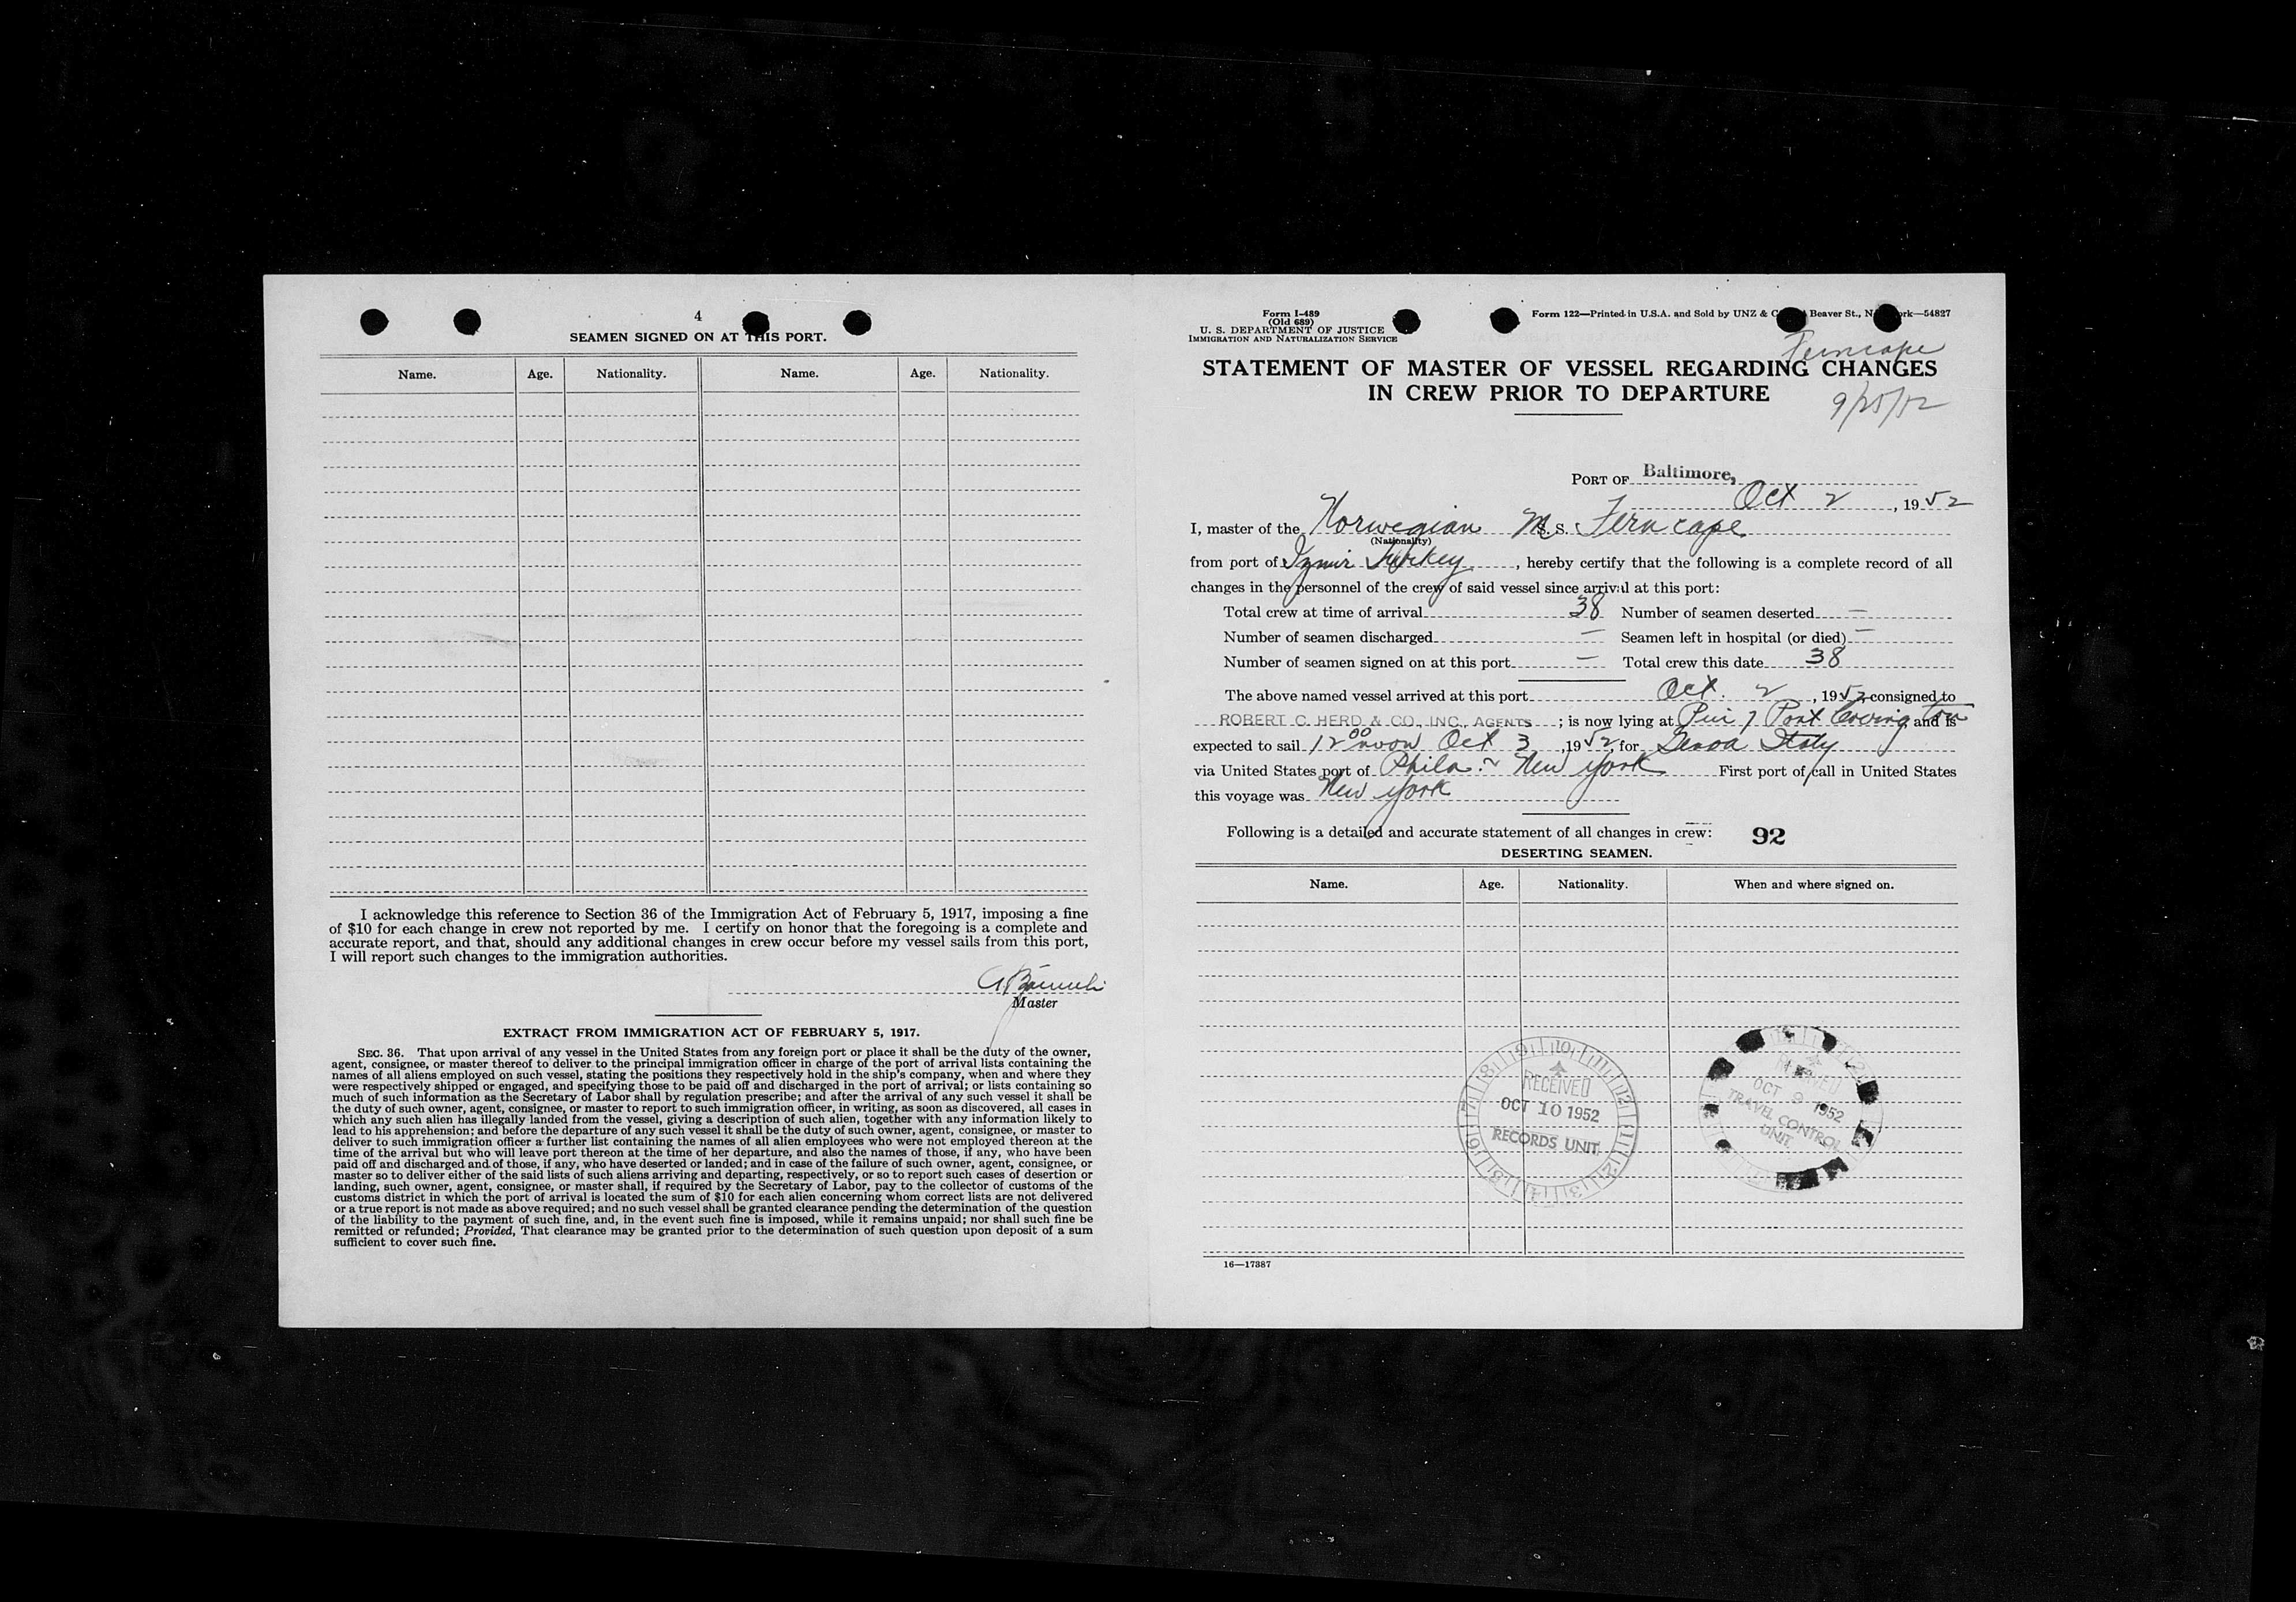 4
SEAMEN SIGNED ON AT THIS PORT.
Name. Age. Nationality. Name. Age. Nationality.
I acknowledge this reference to Section 36 of the Immigration Act of February 5, 1917, imposing a fine
of $10 for each change in crew not reported by me. I certify on honor that the foregoing is a complete and
accurate report, and that, should any additional changes in crew occur before my vessel sails from this port,
I will report such changes to the immigration authorities.
Master
EXTRACT FROM IMMIGRATION ACT OF FEBRUARY 5, 1917.
SEC. 36. That upon arrival of any vessel in the United States from any foreign port or place it shall be the duty of the owner,
agent, consignee, or master thereof to deliver to the principal immigration officer in charge of the port of arrival lists containing the
names of all aliens employed on such vessel, stating the positions they respectively hold in the ship's company, when and where they
were respectively shipped or engaged, and specifying those to be paid off and discharged in the port of arrival; or lists containing so
much of such information as the Secretary of Labor shall by regulation prescribe; and after the arrival of any such vessel it shall be
the duty of such owner, agent, consignee, or master to report to such immigration officer, in writing, as soon as discovered, all cases in
which any such alien has illegally landed from the vessel, giving a description of such alien, together with any information likely to
lead to his apprehension; and before the departure of any such vessel it shall be the duty of such owner, agent, consignee, or master to
deliver to such immigration officer a further list containing the names of all alien employees who were not employed thereon at the
time of the arrival but who will leave port thereon at the time of her departure, and also the names of those, if any, who have been
paid off and discharged and of those, if any, who have deserted or landed; and in case of the failure of such owner, agent, consignee, or
master so to deliver either of the said lists of such aliens arriving and departing, respectively, or so to report such cases of desertion or
landing, such owner, agent, consignee, or master shall, if required by the Secretary of Labor, pay to the collector of customs of the
customs district in which the port of arrival is located the sum of $10 for each alien concerning whom correct lists are not delivered
or a true report is not made as above required; and no such vessel shall be granted clearance pending the determination of the question
of the liability to the payment of such fine, and, in the event such fine is imposed, while it remains unpaid; nor shall such fine be
remitted or refunded; Provided, That clearance may be granted prior to the determination of such question upon deposit of a sum
sufficient to cover such fine.
Form I-489
(Old 689)
U. S. DEPARTMENT OF JUSTICE
IMMIGRATION AND NATURALIZATION SERVICE
Form 122—Printed in U.S.A. and Sold by UNZ & Beaver St., 54827
Ferncape
STATEMENT OF MASTER OF VESSEL REGARDING CHANGES
IN CREW PRIOR TO DEPARTURE
9/25/52
PORT OF Baltimore,
Oct 2, 1952
I, master of the Norwegian M. S. Ferncape
(Nationality)
from port of Izmir Turkey, hereby certify that the following is a complete record of all
changes in the personnel of the crew of said vessel since arrival at this port:
Total crew at time of arrival 38 Number of seamen deserted —
Number of seamen discharged — Seamen left in hospital (or died) —
Number of seamen signed on at this port — Total crew this date 38
The above named vessel arrived at this port Oct. 2, 1952, consigned to
ROBERT C. HERD & CO., INC., AGENTS; is now lying at Pier 7 Port Covington and is
expected to sail 12 00 noon Oct 3, 1952, for Genoa Italy
via United States port of Phila. ~ New York First port of call in United States
this voyage was New York
Following is a detailed and accurate statement of all changes in crew: 92
DESERTING SEAMEN.
Name. Age. Nationality. When and where signed on.
RECEIVED
OCT 10 1952
RECORDS UNIT
RECEIVED
OCT 9 1952
TRAVEL CONTROL
UNIT
16—17387